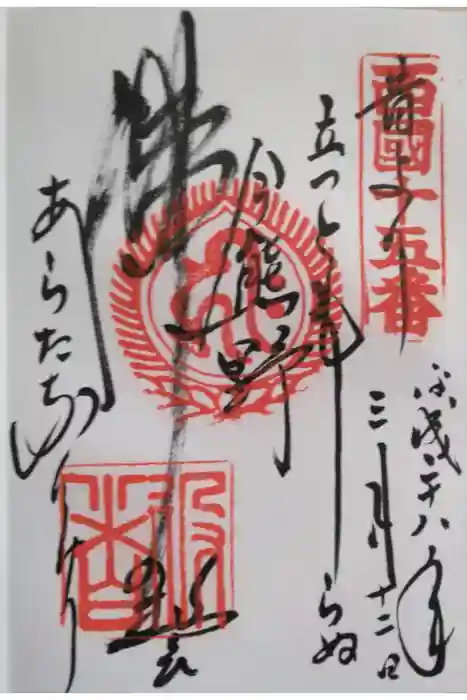 西國十五番
昔より
平成廿八年
三月十二日
立つとも しらぬ
今熊野
佛の誓
あらたなりけり